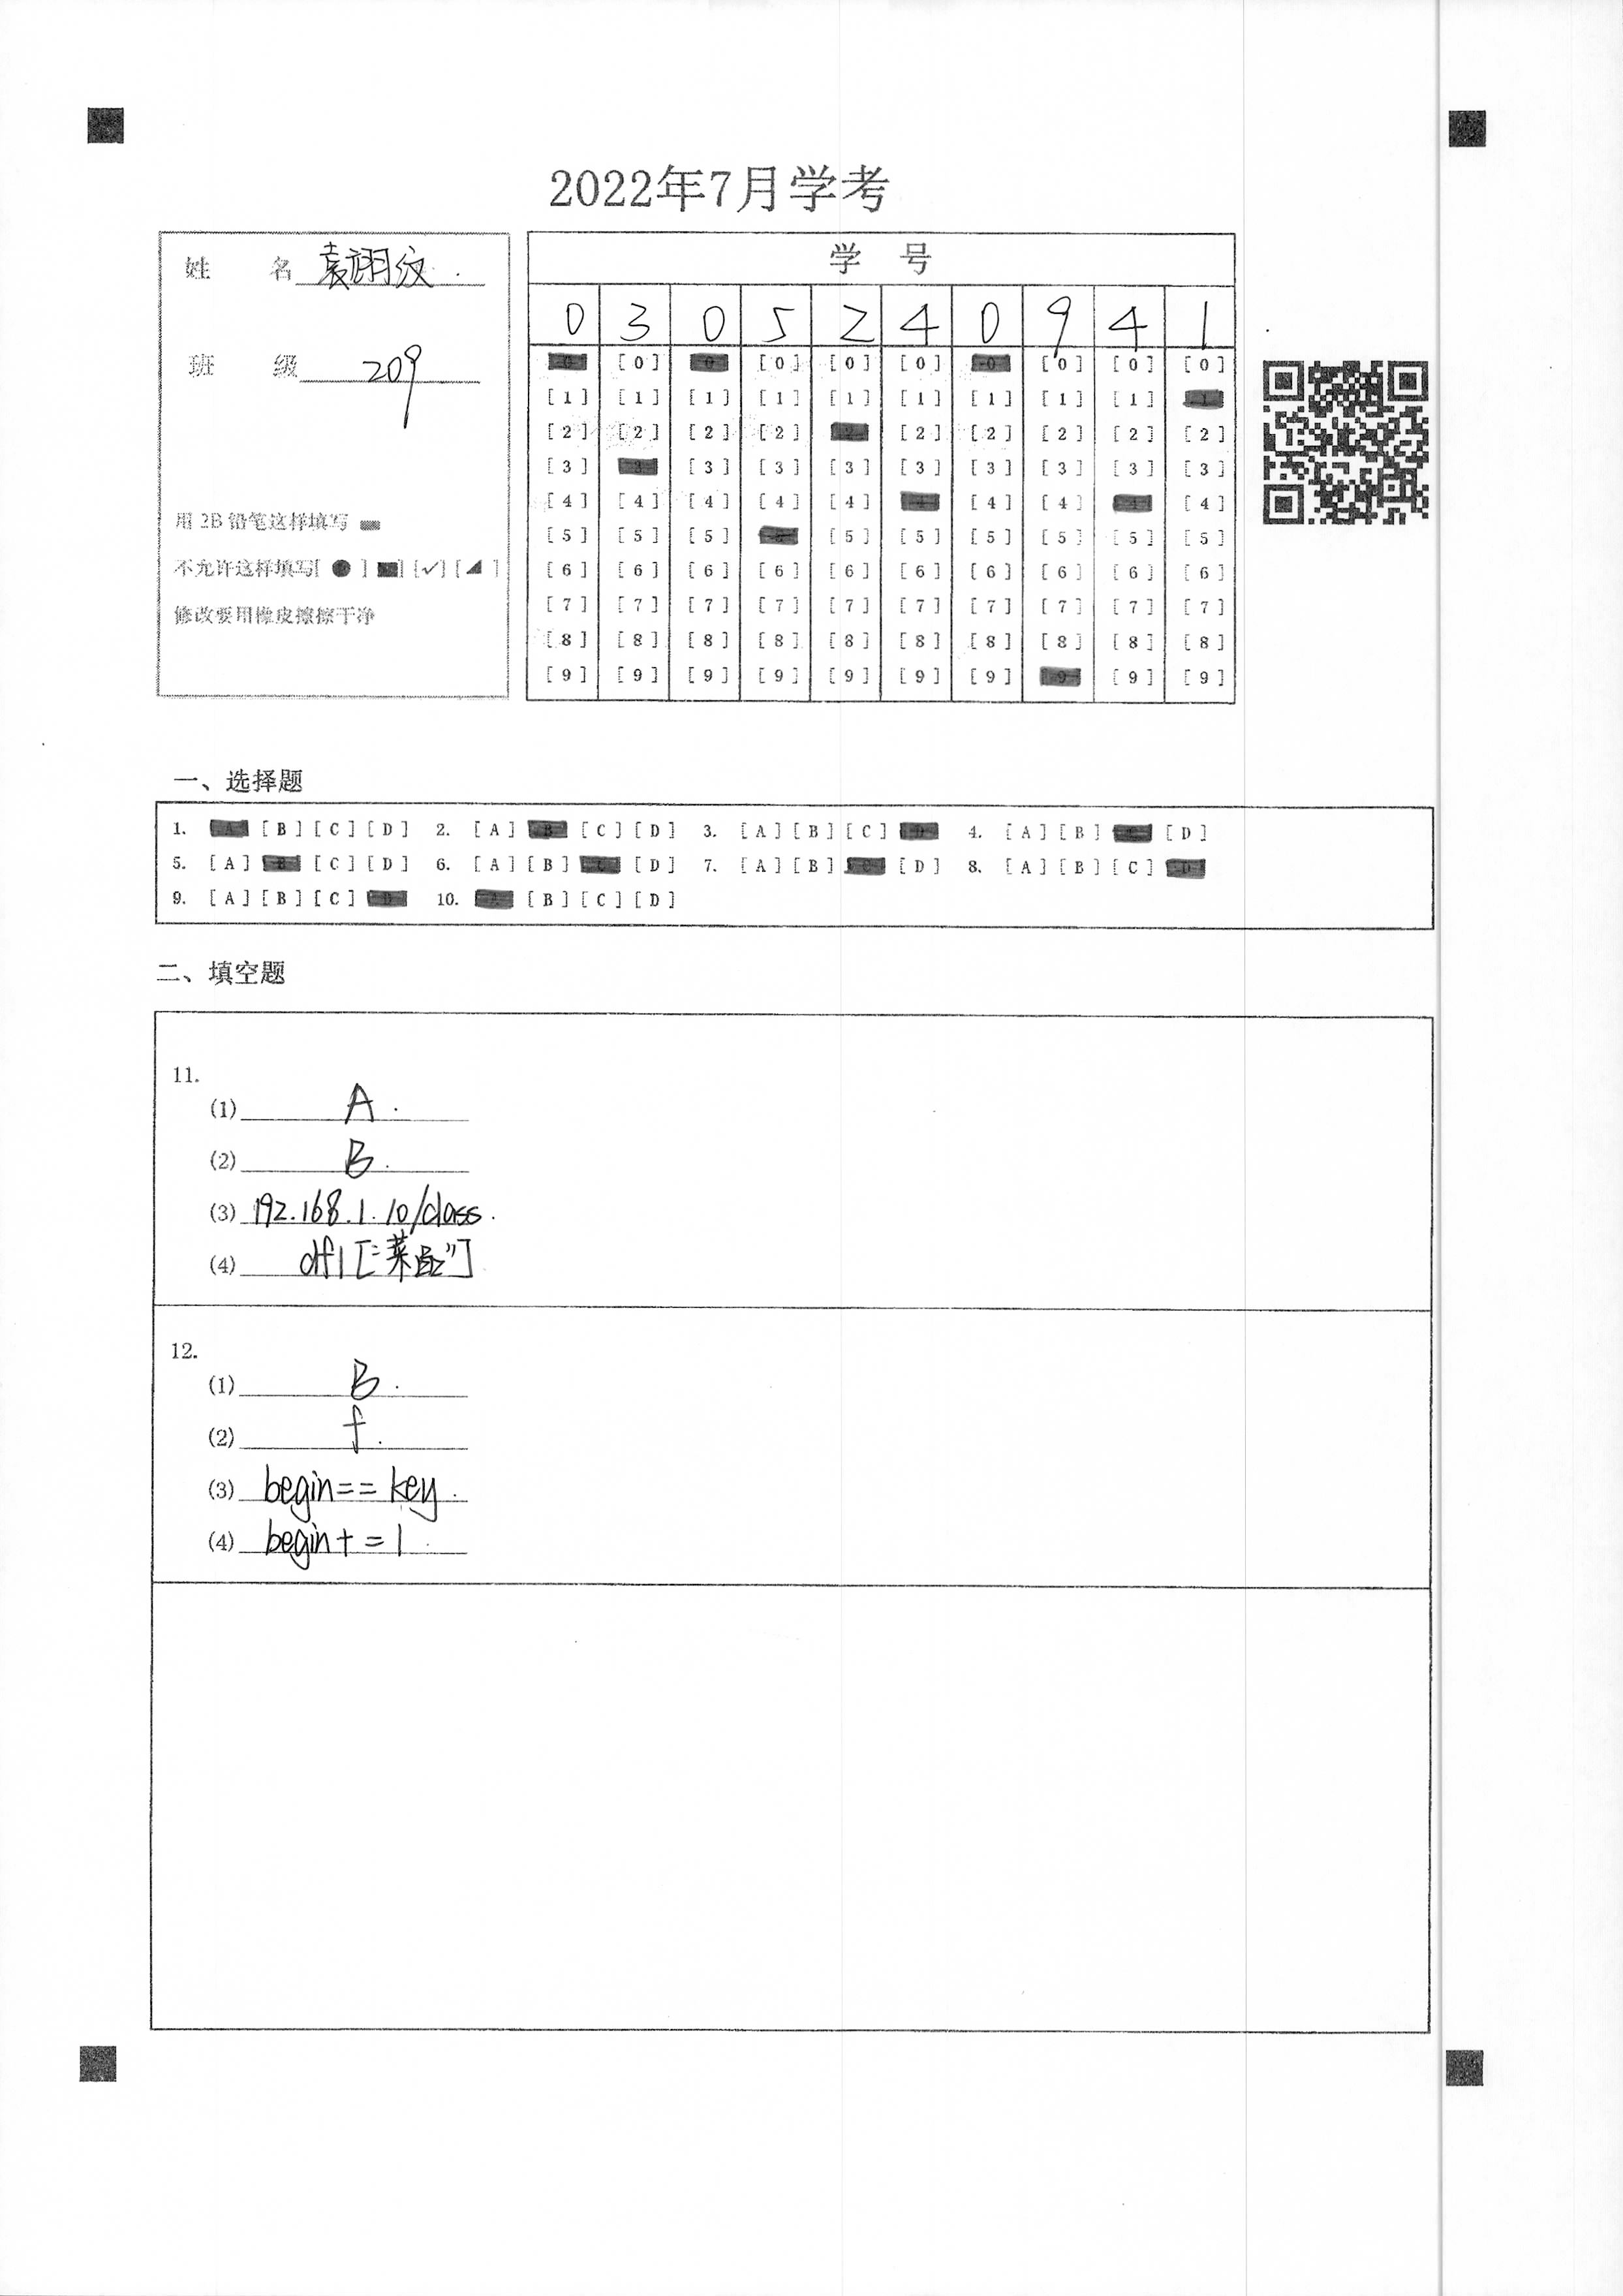 2022年7月学考
姓 名 袁翊纹
班 级 209
用 2B 铅笔这样填写
不允许这样填写[ ● ] [■] [✓] [◢ ]
修改要用橡皮擦擦干净
学 号
0 3 0 5 2 4 0 9 4 1
[0] [0] [0] [0] [0] [0] [0] [0] [0] [0]
[1] [1] [1] [1] [1] [1] [1] [1] [1] [1]
[2] [2] [2] [2] [2] [2] [2] [2] [2] [2]
[3] [3] [3] [3] [3] [3] [3] [3] [3] [3]
[4] [4] [4] [4] [4] [4] [4] [4] [4] [4]
[5] [5] [5] [5] [5] [5] [5] [5] [5] [5]
[6] [6] [6] [6] [6] [6] [6] [6] [6] [6]
[7] [7] [7] [7] [7] [7] [7] [7] [7] [7]
[8] [8] [8] [8] [8] [8] [8] [8] [8] [8]
[9] [9] [9] [9] [9] [9] [9] [9] [9] [9]
一、选择题
1. [A] [B] [C] [D] 2. [A] [B] [C] [D] 3. [A] [B] [C] [D] 4. [A] [B] [C] [D]
5. [A] [B] [C] [D] 6. [A] [B] [C] [D] 7. [A] [B] [C] [D] 8. [A] [B] [C] [D]
9. [A] [B] [C] [D] 10. [A] [B] [C] [D]
二、填空题
11.
(1) A.
(2) B.
(3) 192.168.1.10/class.
(4) df1["菜品"]
12.
(1) B.
(2) f.
(3) begin==key.
(4) begin+=1.